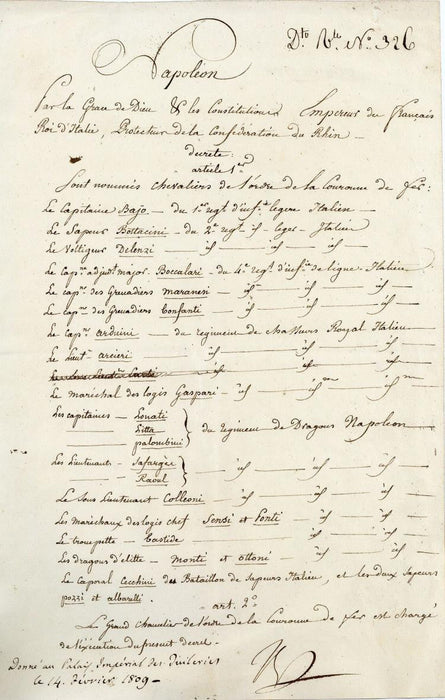 Dto Rle No 326
Napoléon
Par la Grace de Dieu & les Constitutions Empereur des Français
Roi d'Italie, Protecteur de la Confédération du Rhin
decrete:
article 1er
Sont nommés chevaliers de l'ordre de la Couronne de fer:
Le Capitaine Bajo. — du 1er regt d'infie legere Italien —
Le Sapeur Bottacini — du 2e regt id — legere — Italien
Le Voltigeur Delenzi — id — id — id —
Le capne adjudt major. Boccalari — du 4e regt d'infie de ligne Italien
Le capne des Grenadiers maranesi id — id — id
Le capne des Grenadiers Bonfanti — id — id — id
Le capne arduini — du regiment de chasseurs Royal Italien
Le Lieutt arcieri — id — id — id
Le maréchal des logis Gaspari — id — id — id
Les capitaines — Lonati
Litta
palombini
du regiment de Dragons Napoleon
Les Lieutenants — Safargée — id — id — id
Raoul — id — id — id
Le sous Lieutenant Colleoni — id — id — id
Les maréchaux des logis chef Sensi et Ponti — id — id — id
Le trompette — Bastide — id — id — id
Les dragons d'élitte — Monti et ottoni — id — id — id
Le caporal Cecchini du Bataillon de Sapeurs Italien, et les deux Sapeurs
pozzi et albaretti.
art. 2o
Le Grand Chancelier de l'ordre de la Couronne de fer est chargé
de l'exécution du présent décret.
Donné au Palais Impérial des Tuileries
le 14. Février 1809 —